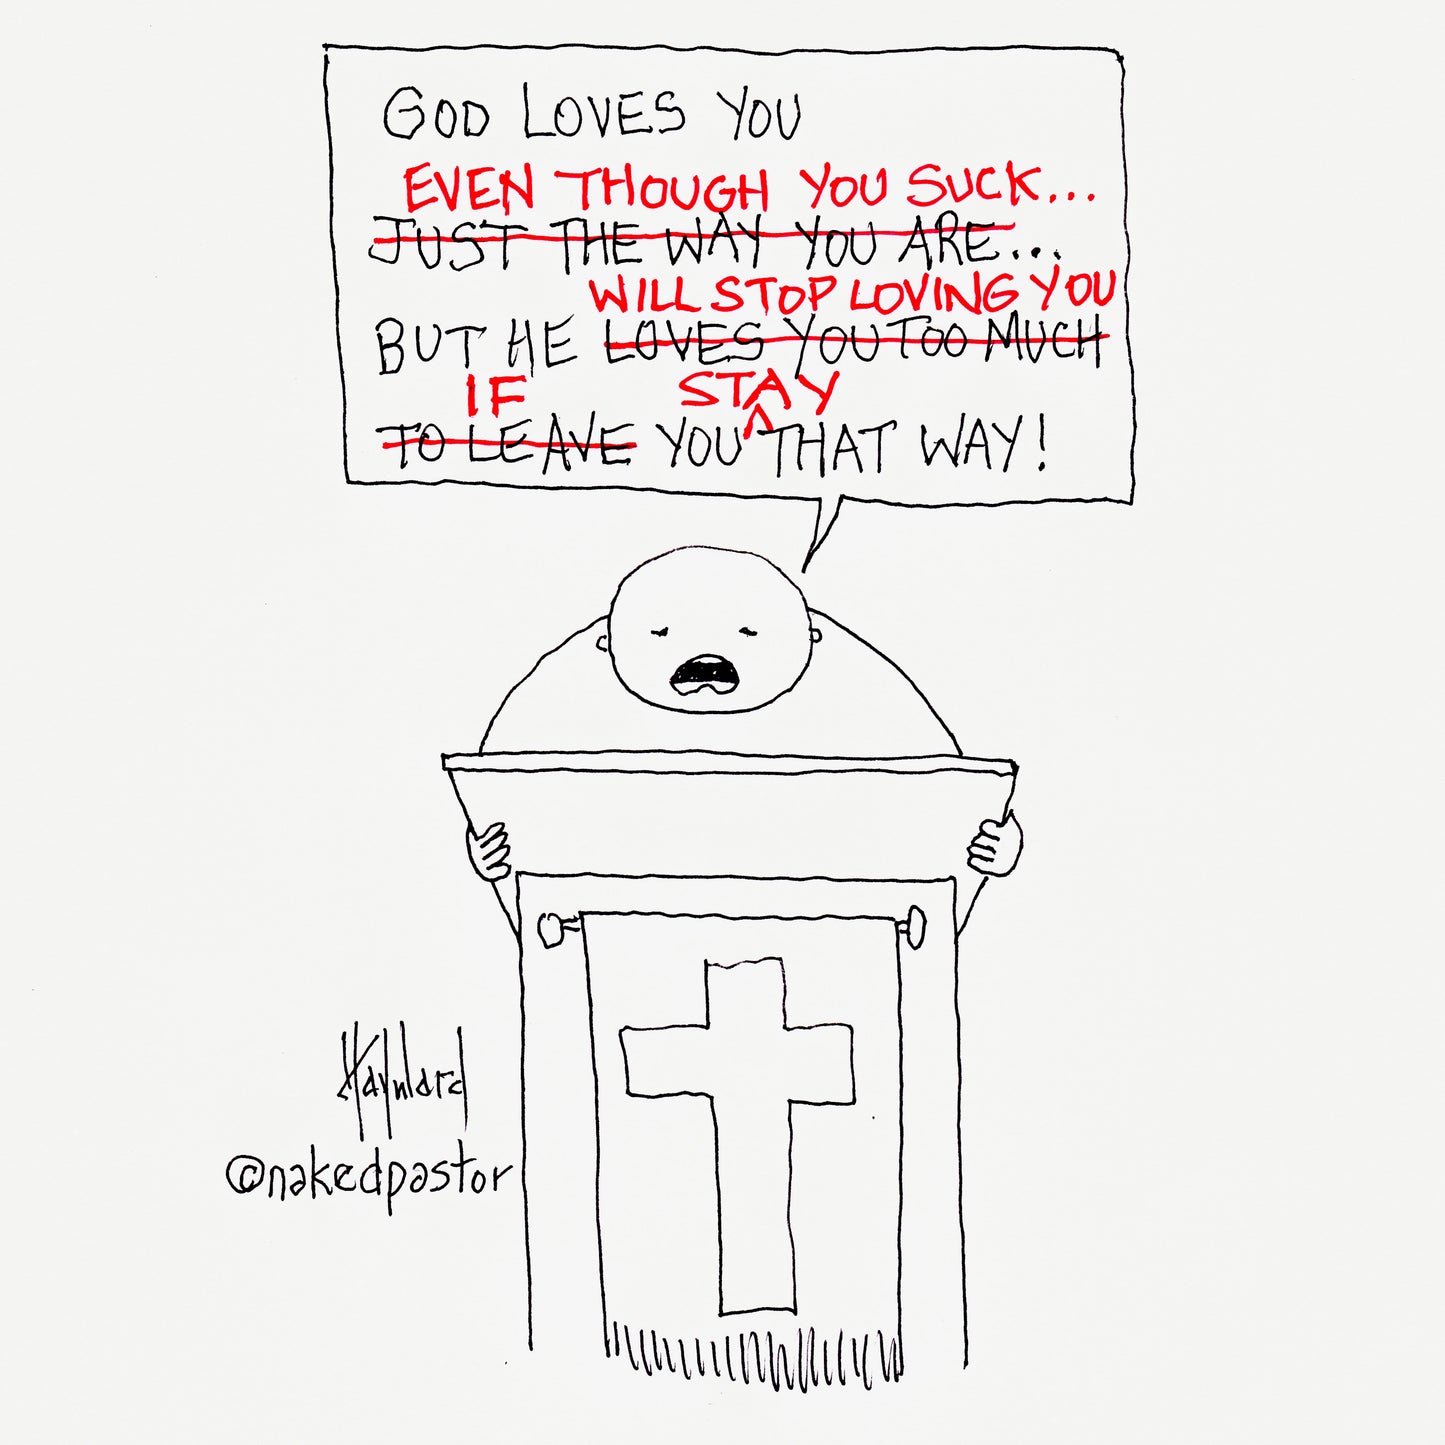 GOD LOVES YOU
EVEN THOUGH YOU SUCK...
JUST THE WAY YOU ARE...
WILL STOP LOVING YOU
BUT HE LOVES YOU TOO MUCH
IF STAY
TO LEAVE YOU THAT WAY!
Hayward
@nakedpastor